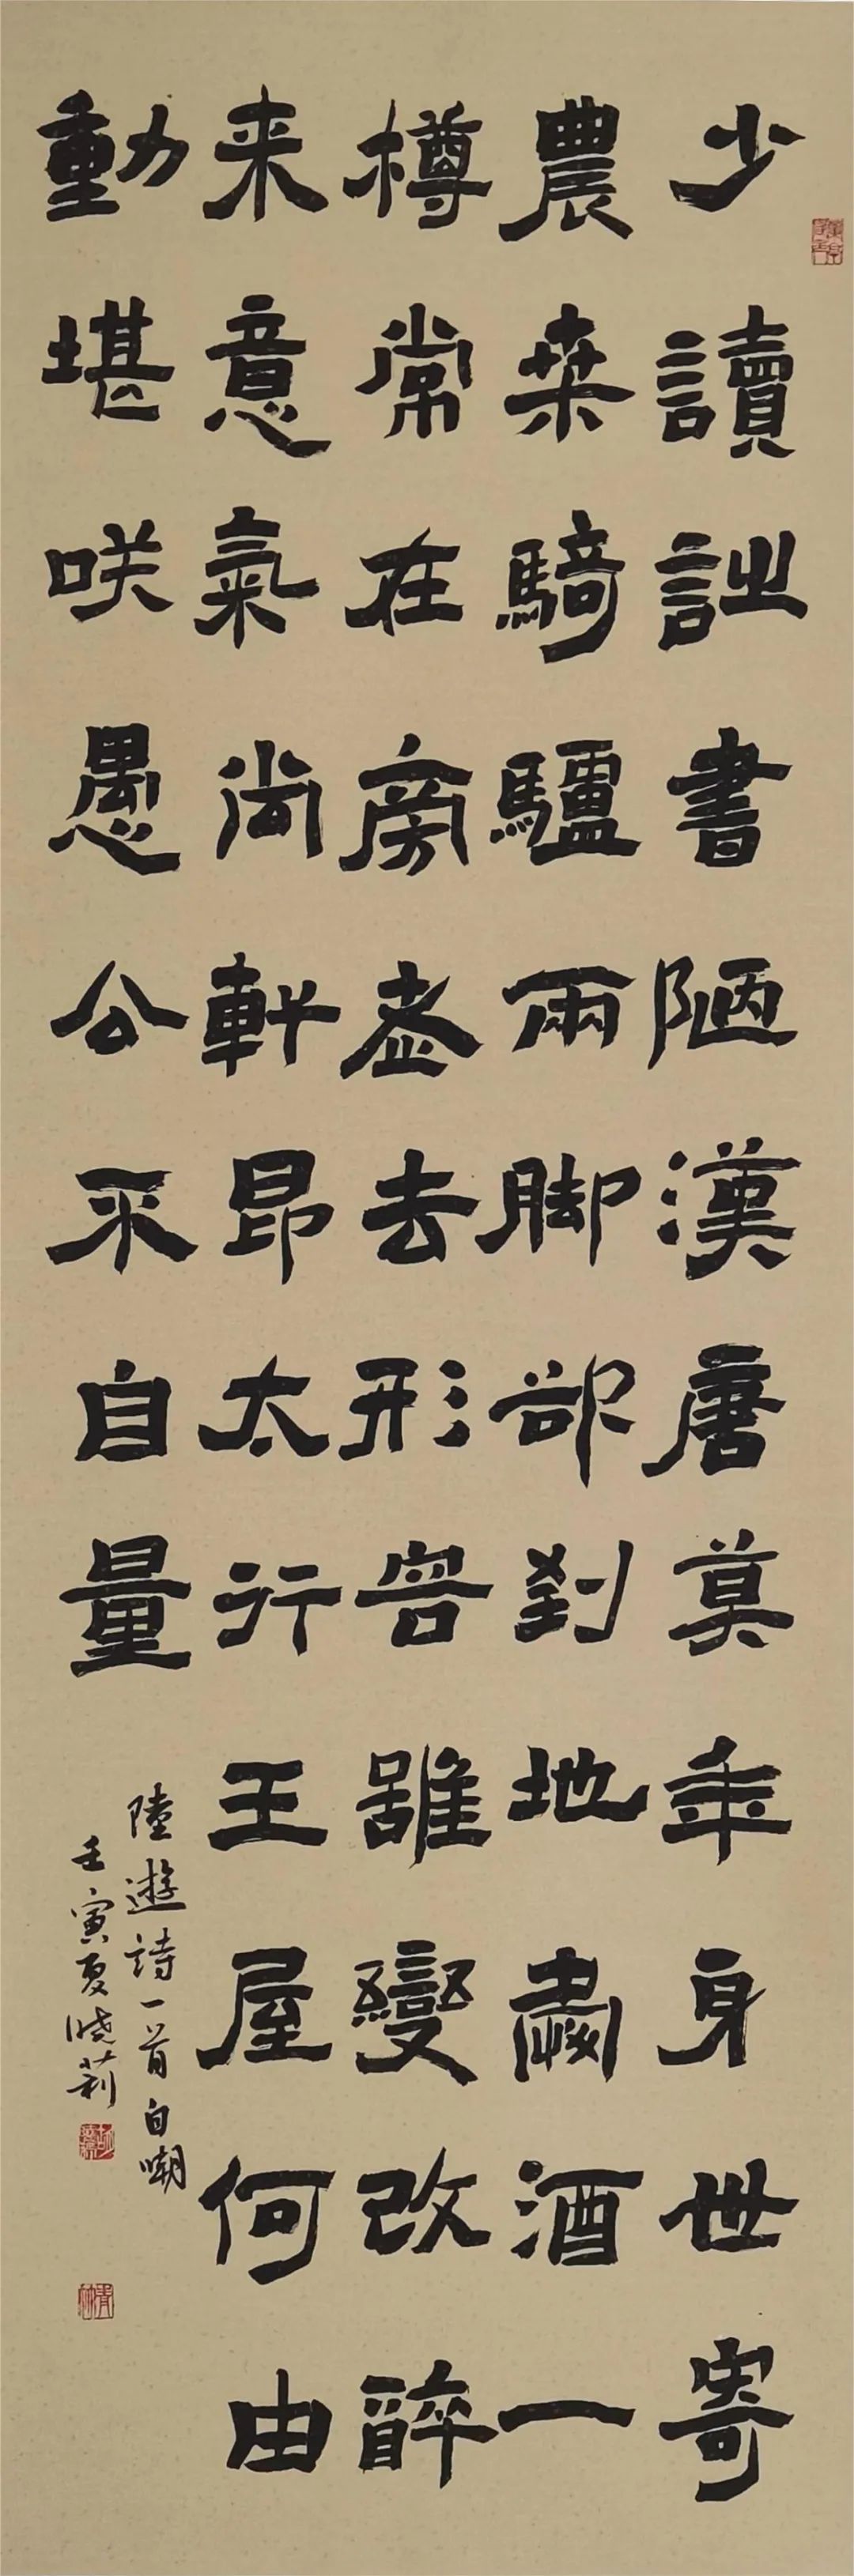 少讀詩書陋漢唐莫年身世寄
農桒騎驢兩脚卻到地肅酒一
樽常在旁老去形容雖變改醉
来意氣尚軒昂太行王屋何由
動堪咲愚公不自量
陸遊詩一首自嘲
壬寅夏曉莉